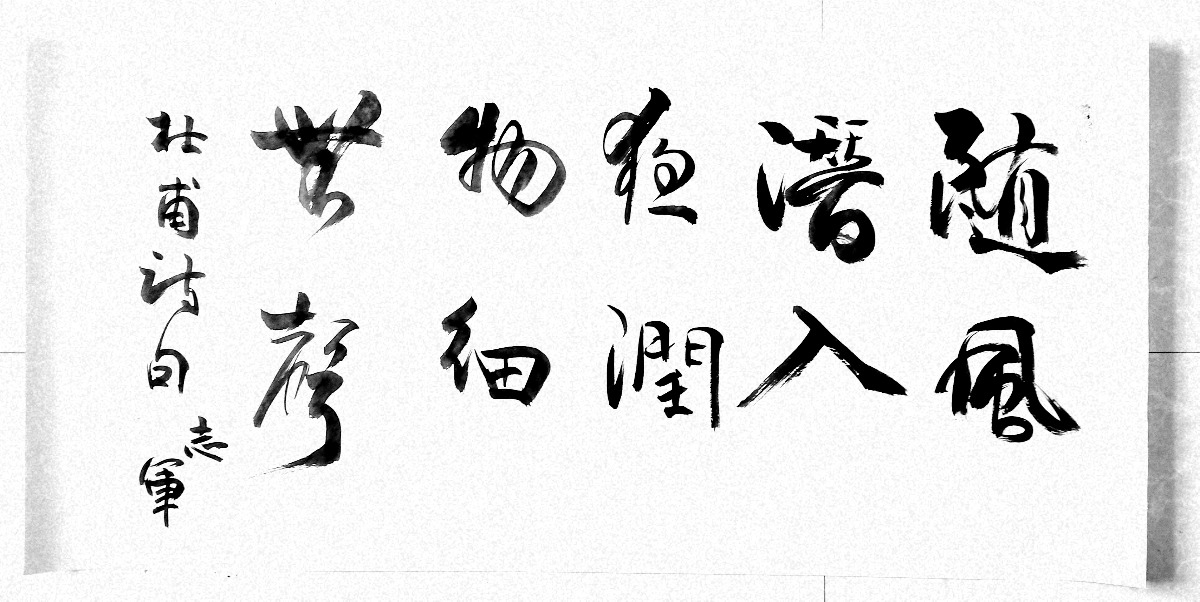 随風
潜入
夜潤
物細
無聲
杜甫詩句 志軍